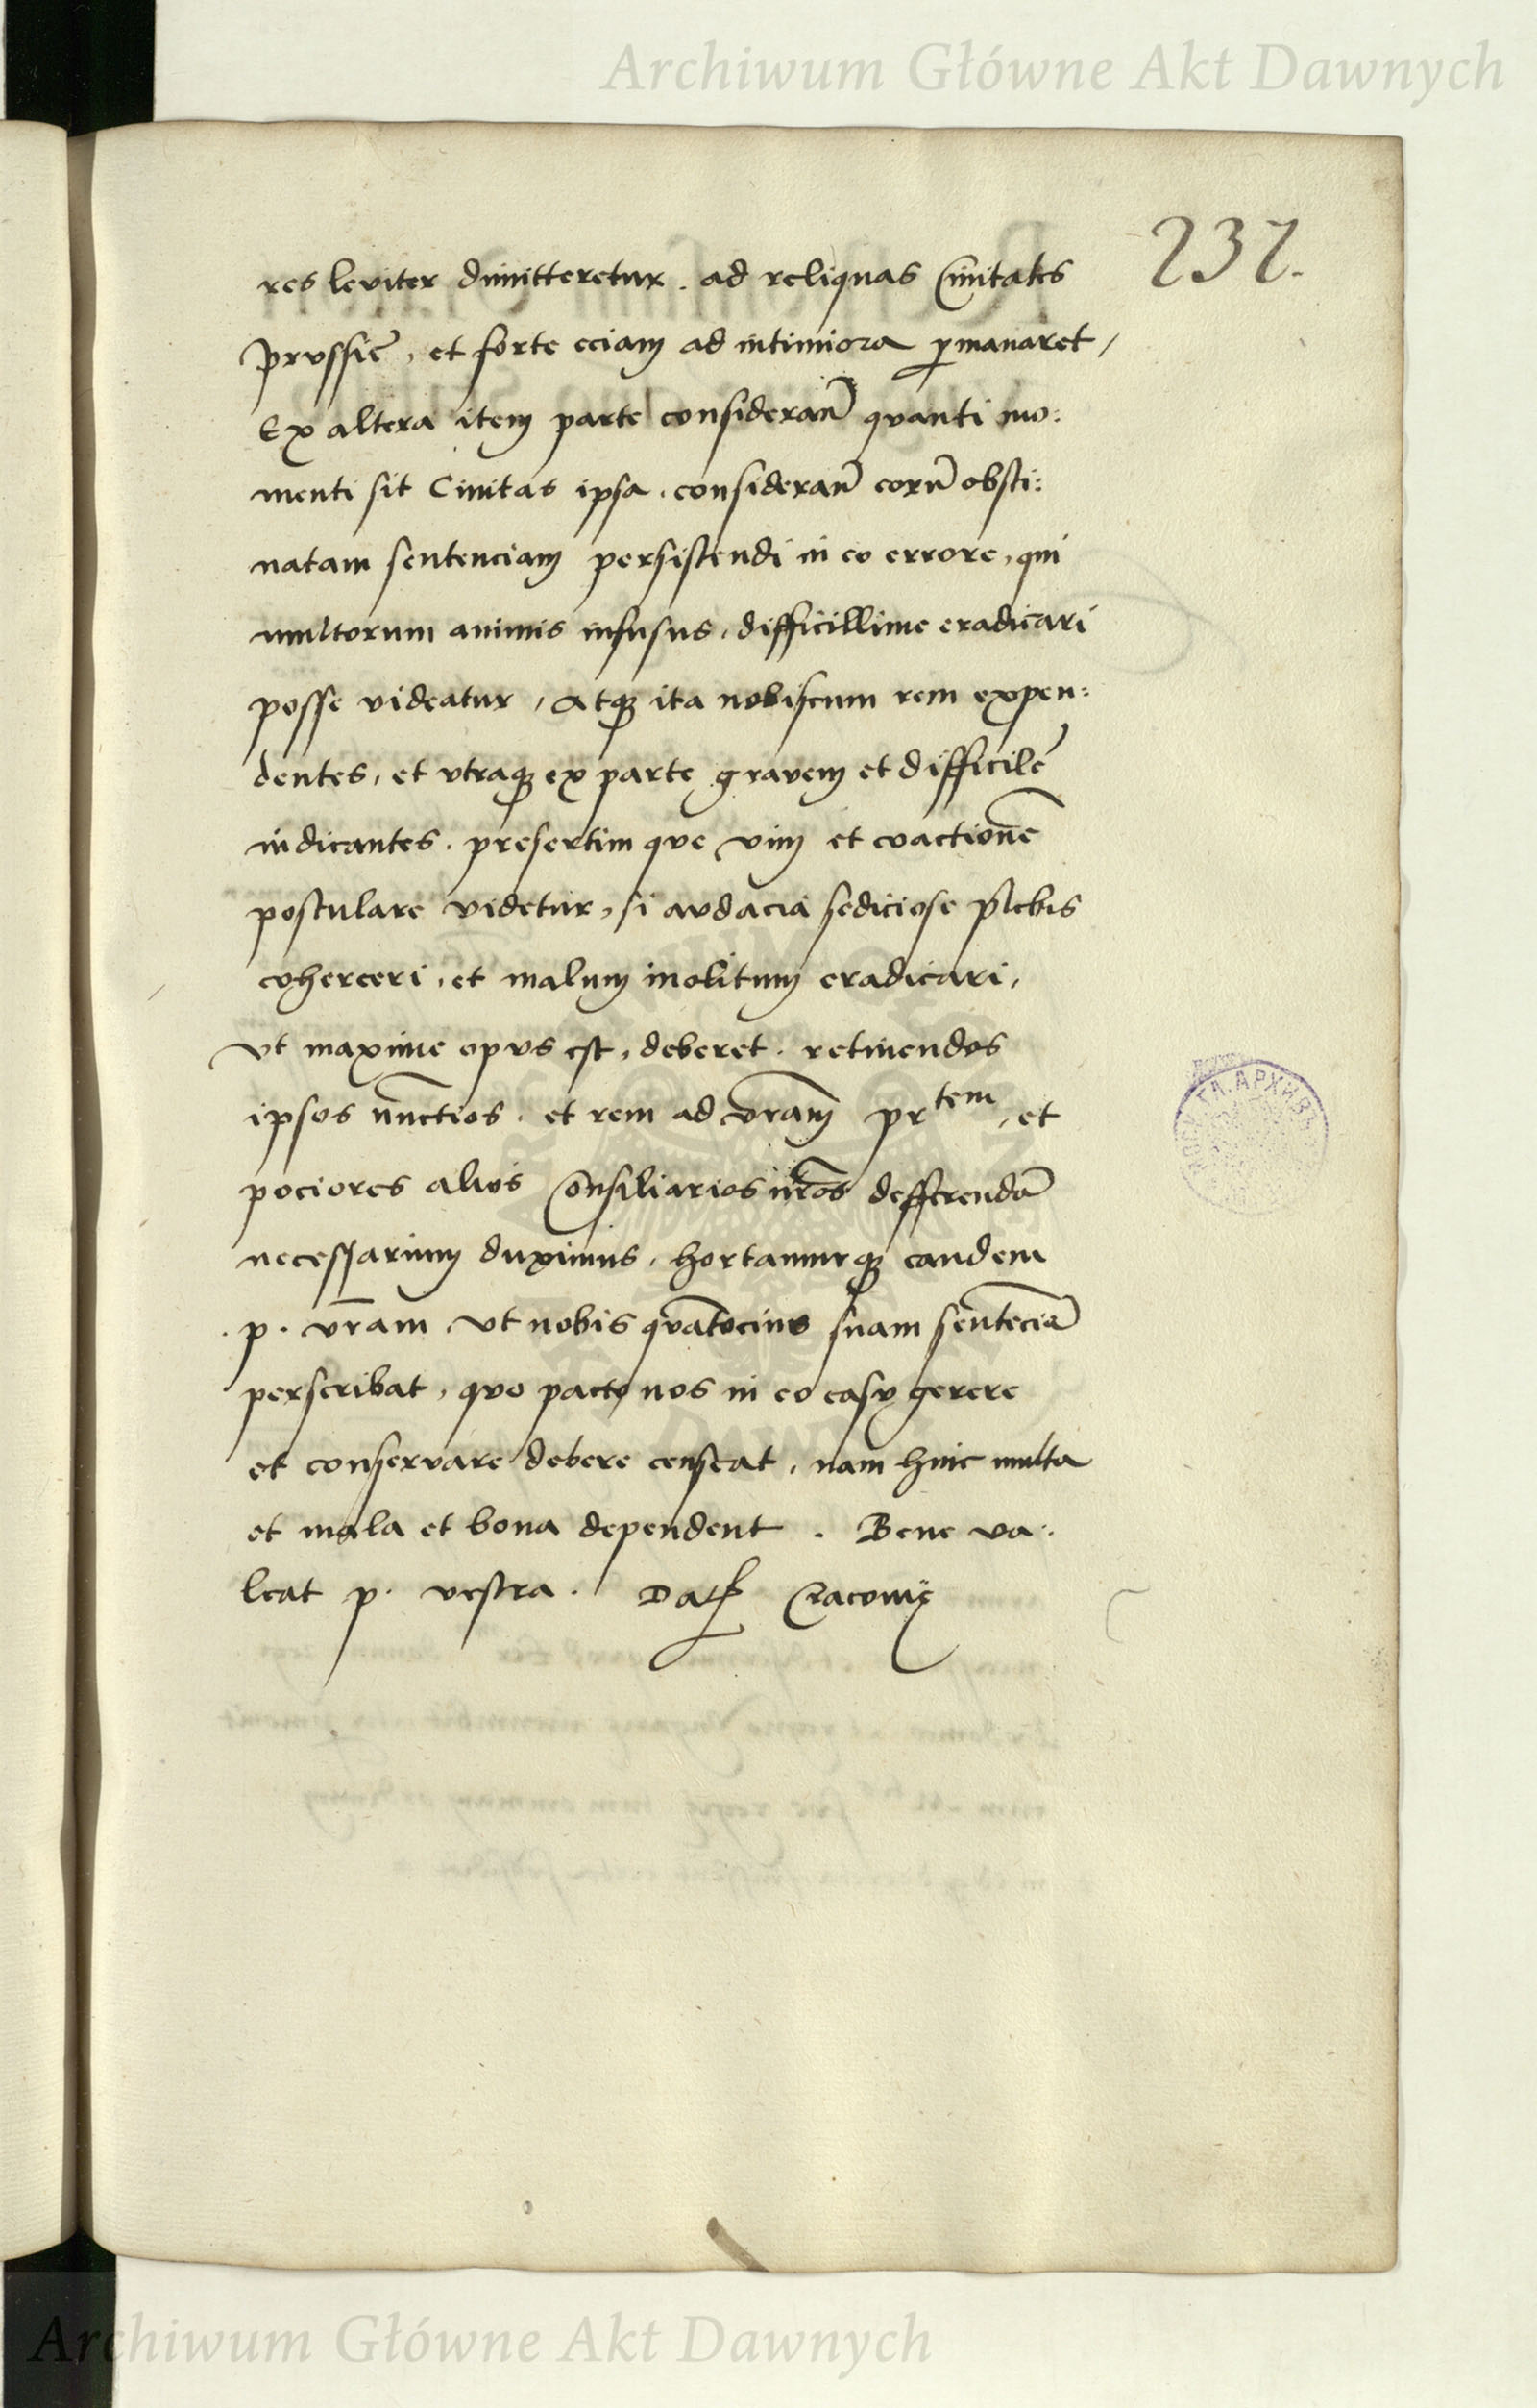 Archiwum Główne Akt Dawnych
237.
res leviter dimitteretur. ad reliquas Civitates
Prvssie, et forte eciam ad intimiora p̱manaret,
Ex altera item parte considerañ qvanti mo:
menti sit Civitas ipsa, considerañ eorū obsti:
natam sentenciam persistendi in eo errore, qui
multorum animis infusus, difficillime eradicari
posse videatur, Atqꝫ ita nobiscum rem expen:
dentes, et vtraqꝫ ex parte gravem et difficilē
iudicantes. presertim qve vim et coactionē
postulare videtur, si avdacia sediciose plebis
coherceri, et malum inolitum eradicari,
vt maxime opvs est, deberet. retinendos
ipsos nūctios. et rem ad vr̄am pr^tem, et
pociores alios Consiliarios nr̄os defferendā
necessarium duximus, hortamurqꝫ eandem
p. vr̄am, vt nobis qvātocius suam sentēciā
perscribat, qvo pacto nos in eo casv gerere
et conservare debere censeat, nam hinc multa
et mala et bona dependent. Bene va:
leat p. vestra. Datꝭ Cracovię
ГЛ. АРХИВЪ
Archiwum Główne Akt Dawnych